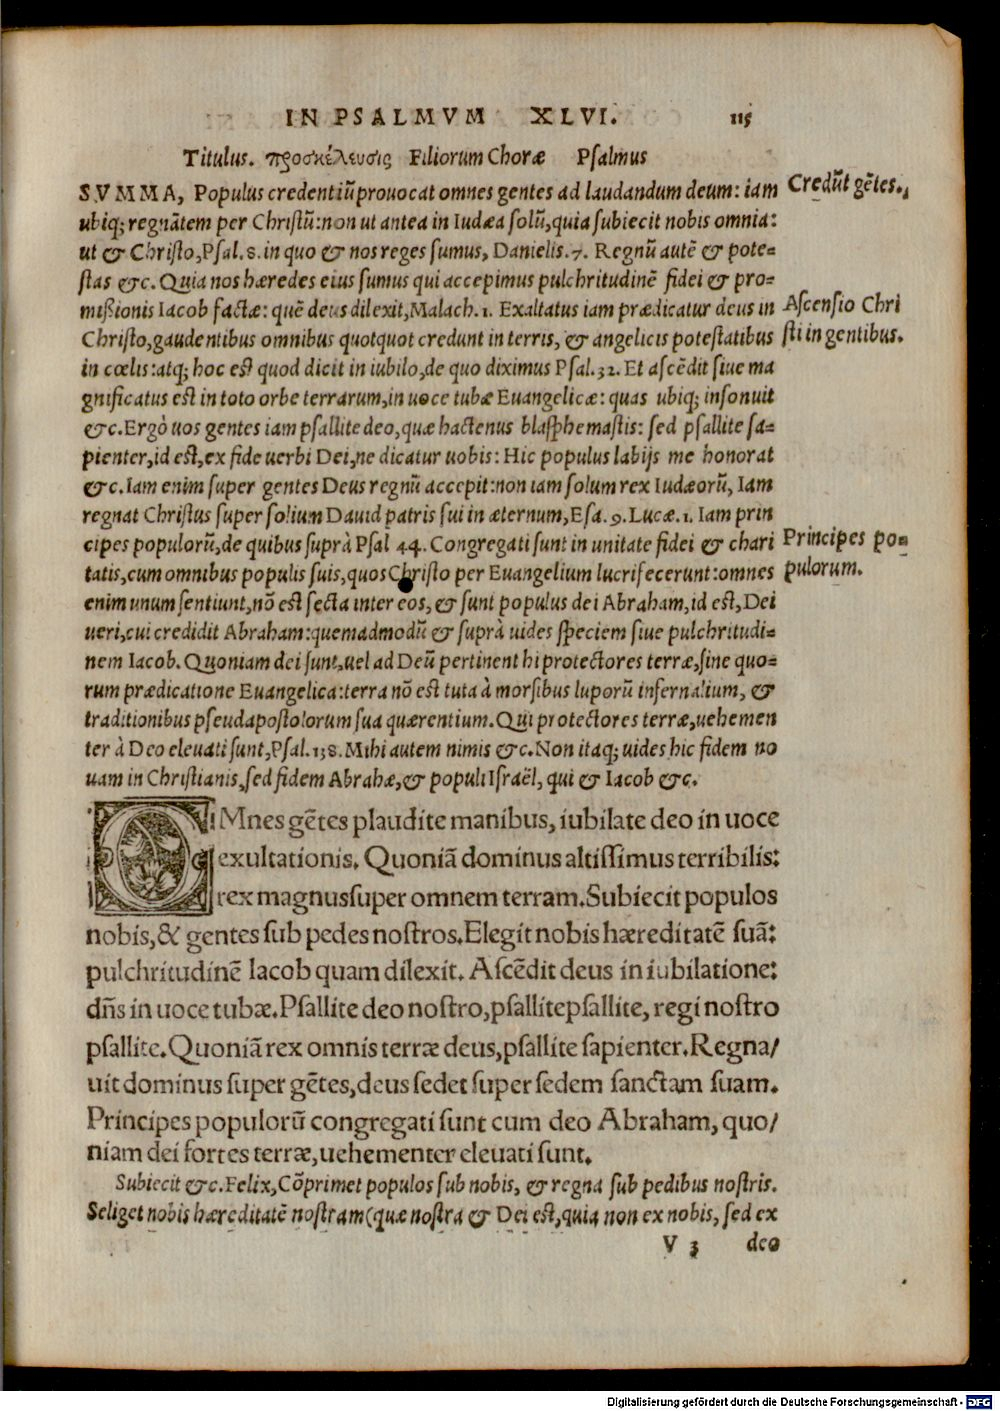 IN PSALMVM XLVI. 115
Titulus. προσκέλευσις Filiorum Choræ Psalmus
SVMMA, Populus credentiũ prouocat omnes gentes ad laudandum deum: iam
Credũt gẽtes.
ubiq; regnãtem per Christũ: non ut antea in Iudæa solũ, quia subiecit nobis omnia:
ut & Christo, Psal. 8. in quo & nos reges sumus, Danielis. 7. Regnũ autẽ & pote=
stas &c. Quia nos hæredes eius sumus qui accepimus pulchritudinẽ fidei & pro=
mißionis Iacob factæ: quẽ deus dilexit, Malach. 1. Exaltatus iam prædicatur deus in
Ascensio Chri
Christo, gaudentibus omnibus quotquot credunt in terris, & angelicis potestatibus
sti in gentibus.
in cœlis: atq; hoc est quod dicit in iubilo, de quo diximus Psal. 32. Et ascẽdit siue ma
gnificatus est in toto orbe terrarum, in uoce tubæ Euangelicæ: quas ubiq; insonuit
&c. Ergò uos gentes iam psallite deo, quæ hactenus blasphemastis: sed psallite sa=
pienter, id est, ex fide uerbi Dei, ne dicatur uobis: Hic populus labijs me honorat
&c. Iam enim super gentes Deus regnũ accepit: non iam solum rex Iudæorũ, Iam
regnat Christus super solium Dauid patris sui in æternum, Esa. 9. Lucæ. 1. Iam prin
cipes populorũ, de quibus suprà Psal 44. Congregati sunt in unitate fidei & chari
Principes po=
tatis, cum omnibus populis suis, quos Christo per Euangelium lucrifecerunt: omnes
pulorum.
enim unum sentiunt, nõ est secta inter eos, & sunt populus dei Abraham, id est, Dei
ueri, cui credidit Abraham: quemadmodũ & suprà uides speciem siue pulchritudi=
nem Iacob. Quoniam dei sunt, uel ad Deũ pertinent hi protectores terræ, sine quo=
rum prædicatione Euangelica: terra nõ est tuta à morsibus luporũ infernalium, &
traditionibus pseudapostolorum sua quærentium. Qui protectores terræ, uehemen
ter à Deo eleuati sunt, Psal. 138. Mihi autem nimis &c. Non itaq; uides hic fidem no
uam in Christianis, sed fidem Abrahæ, & populi Israël, qui & Iacob &c.
OMnes gẽtes plaudite manibus, iubilate deo in uoce
exultationis. Quoniã dominus altissimus terribilis:
rex magnus super omnem terram. Subiecit populos
nobis, & gentes sub pedes nostros. Elegit nobis hæreditatẽ suã:
pulchritudinẽ Iacob quam dilexit. Ascẽdit deus in iubilatione:
dñs in uoce tubæ. Psallite deo nostro, psallite psallite, regi nostro
psallite. Quoniã rex omnis terræ deus, psallite sapienter. Regna/
uit dominus super gẽtes, deus sedet super sedem sanctam suam.
Principes populorũ congregati sunt cum deo Abraham, quo/
niam dei fortes terræ, uehementer eleuati sunt.
Subiecit &c. Felix, Cõprimet populos sub nobis, & regna sub pedibus nostris.
Seliget nobis hæreditatẽ nostram (quæ nostra & Dei est, quia non ex nobis, sed ex
V 3 deo
Digitalisierung gefördert durch die Deutsche Forschungsgemeinschaft - DFG